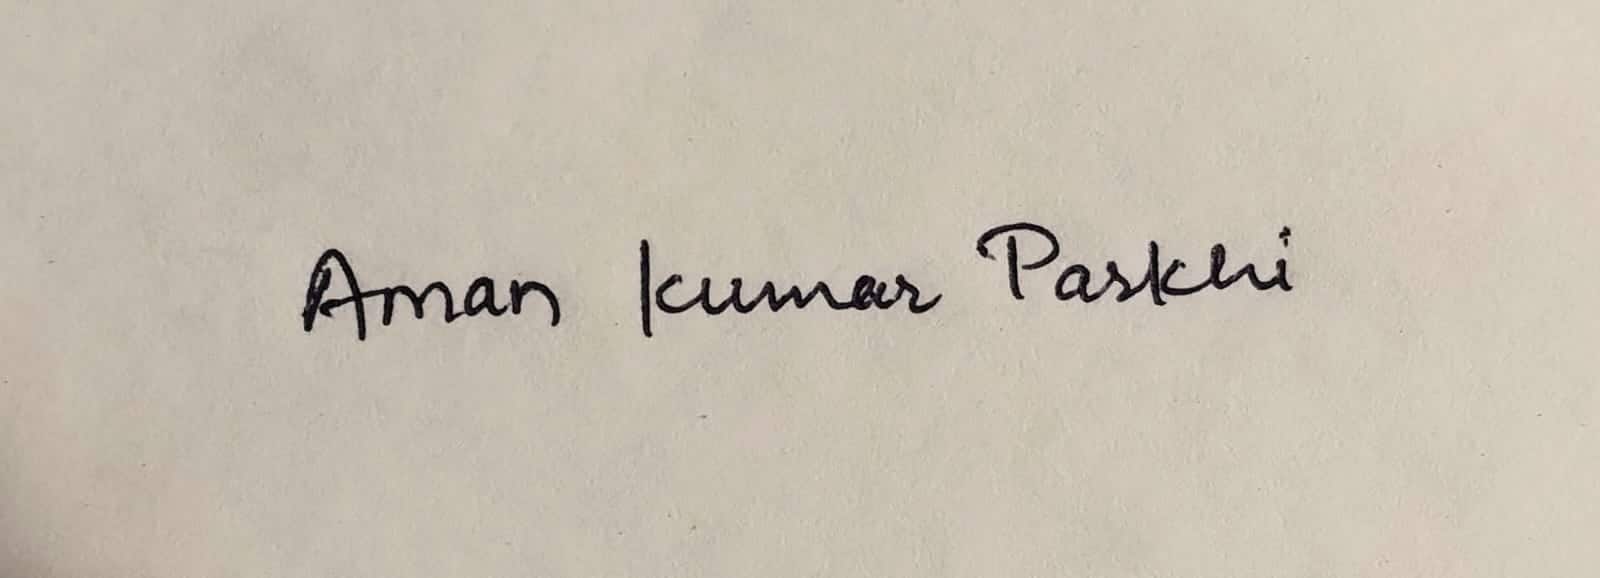 Aman Kumar Parkhi